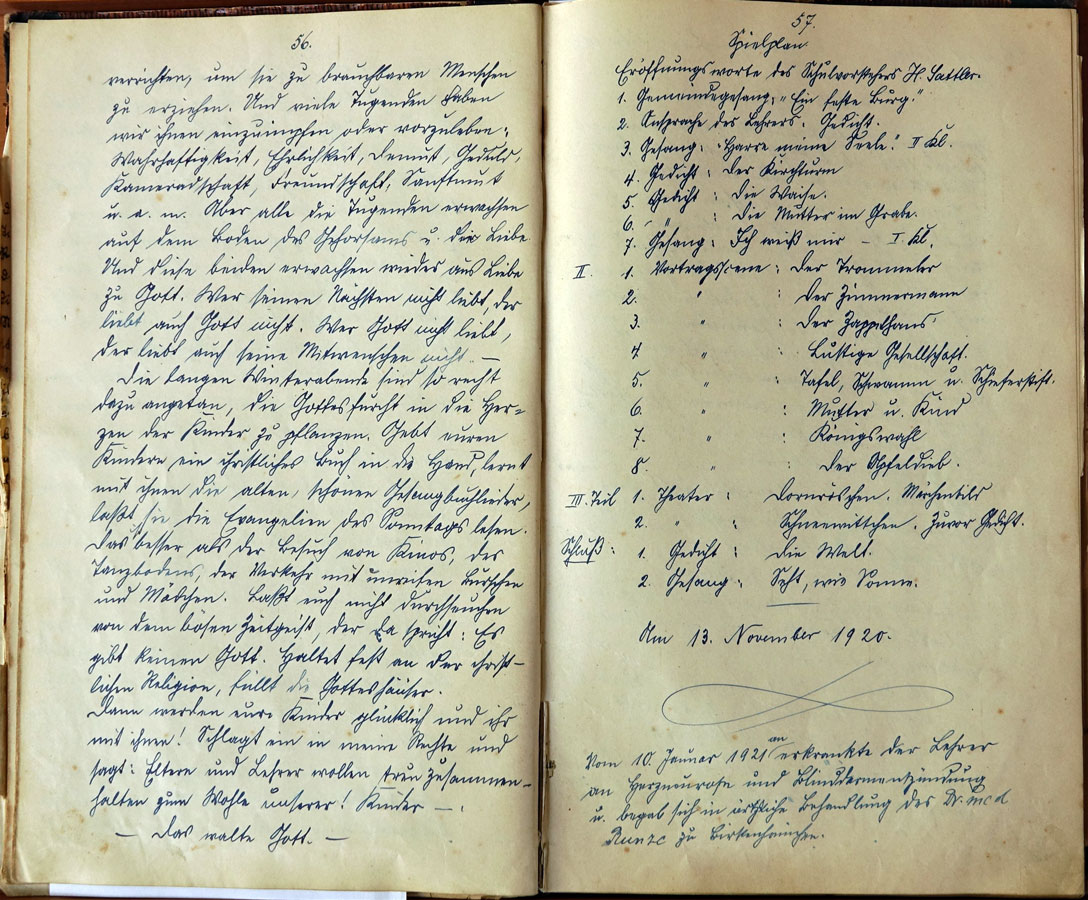 56.
verrichten, um sie zu brauchbaren Menschen
zu erziehen. Und viele Tugenden haben
wir ihnen einzuimpfen oder vorzuleben:
Wahrhaftigkeit, Ehrlichkeit, Demut, Geduld,
Kameradschaft, Freundschaft, Sanftmut
u. a. m. Aber alle die Tugenden erwachsen
auf dem Boden des Gehorsams u. der Liebe
Und diese beiden erwachsen wieder aus Liebe
zu Gott. Wer seinen Nächsten nicht liebt, der
liebt auch Gott nicht. Wer Gott nicht liebt,
der liebt auch seine Mitmenschen nicht. —
Die langen Winterabende sind so recht
dazu angetan, die Gottesfurcht in die Her-
zen der Kinder zu pflanzen. Gebt euren
Kindern ein christliches Buch in die Hand, lernt
mit ihnen die alten, schönen Gesangbuchlieder,
laßt sie die Evangelien des Sonntags lesen.
Das besser als der Besuch von Kinos, des
Tanzbodens, der Verkehr mit unreifen Burschen
und Mädchen. Laßt euch nicht durchseuchen
von dem bösen Zeitgeist, der da spricht: Es
gibt keinen Gott. Haltet fest an der christ-
lichen Religion, füllt die Gotteshäuser.
Dann werden eure Kinder glücklich und ihr
mit ihnen! Schlagt ein in meine Rechte und
sagt: Eltern und Lehrer wollen treu zusammen-
halten zum Wohle unserer! Kinder —.
— Das walte Gott. —
57.
Spielplan.
Eröffnungsworte des Schulvorstehers H. Sattler.
1. Gemeindegesang: "Ein feste Burg."
2. Ansprache des Lehrers. Gedicht.
3. Gesang: "Harre meine Seele." II Kl.
4. Gedicht: Der Kirchturm
5. Gedicht: Die Waise.
6. " : Die Mutter im Grabe.
7. Gesang: Ich weiß mir — I Kl.
II. 1. Vortragsscene: Der Trommeler
2. " : Der Zimmermann
3. " : Der Zappelhans
4 " : Lustige Gesellschaft.
5. " : Tafel, Schwamm u. Schieferstift.
6. " : Mutter u. Kind
7. " : Königswahl
8. " : Der Apfeldieb.
III. Teil 1. Theater: Dornröschen. Märchenbild
2. " " Schneewittchen. Zuvor Gedicht.
Schluß: 1. Gedicht: Die Welt.
2. Gesang: Seht, wie Sonne.
Am 13. November 1920.
Vom 10. Januar 1921 an erkrankte der Lehrer
an Herzneurose und Blinddarmentzündung
u. begab sich in ärztliche Behandlung des Dr. med
zu Birkenhainchen.